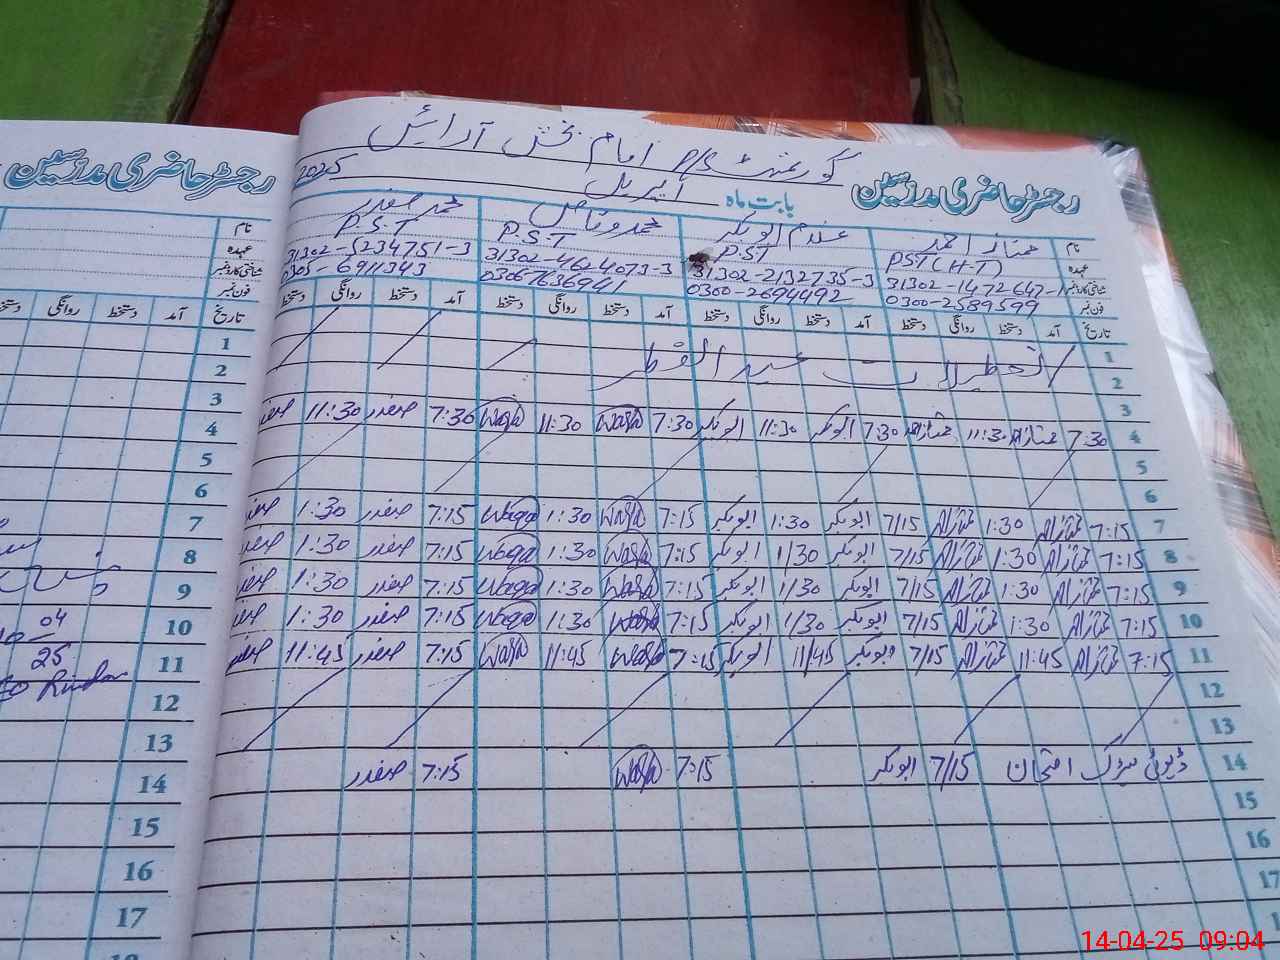 گورنمنٹ P/S امام بخش آرائیں
رجسٹر حاضری مدرسین
بابت ماہ اپریل 2025
رجسٹر حاضری مدرسین
نام ممتاز احمد غلام ابوبکر محمد وقاص محمد صفدر
عہدہ PST (H-T) PST P.S.T P.S.T
شناختی کارڈ نمبر 31302-1472647-1 31302-2132735-3 31302-4624073-3 31302-5234751-3
فون نمبر 0300-2589599 0300-2694492 03067636941 0305-6911343
تاریخ آمد دستخط روانگی دستخط آمد دستخط روانگی دستخط آمد دستخط روانگی دستخط آمد دستخط روانگی دستخط
1 تعطیلات عید الفطر
2
3
4 7:30 ممتاز احمد 11:30 ممتاز احمد 7:30 ابوبکر 11:30 ابوبکر 7:30 11:30 7:30 صفدر 11:30 صفدر
5
6
7 7:15 ممتاز احمد 1:30 ممتاز احمد 7/15 ابوبکر 1:30 ابوبکر 7:15 1:30 7:15 صفدر 1:30 صفدر
8 7:15 ممتاز احمد 1:30 ممتاز احمد 7/15 ابوبکر 1/30 ابوبکر 7:15 1:30 7:15 صفدر 1:30 صفدر
9 7:15 ممتاز احمد 1:30 ممتاز احمد 7/15 ابوبکر 1/30 ابوبکر 7:15 1:30 7:15 صفدر 1:30 صفدر
10 7:15 ممتاز احمد 1:30 ممتاز احمد 7/15 ابوبکر 1/30 ابوبکر 7:15 1:30 7:15 صفدر 1:30 صفدر
11 7:15 ممتاز احمد 11:45 ممتاز احمد 7/15 ابوبکر 11/45 ابوبکر 7:15 11:45 7:15 صفدر 11:45 صفدر
12
13
14 ڈیوٹی میٹرک امتحان 7/15 ابوبکر 7:15 7:15 صفدر
15
16
17
نام
عہدہ
شناختی کارڈ نمبر
فون نمبر
تاریخ آمد دستخط روانگی دستخط
1
2
3
4
5
6
7
8
9
10 04
11 25
12
13
14
15
16
17
18
14-04-25 09:04